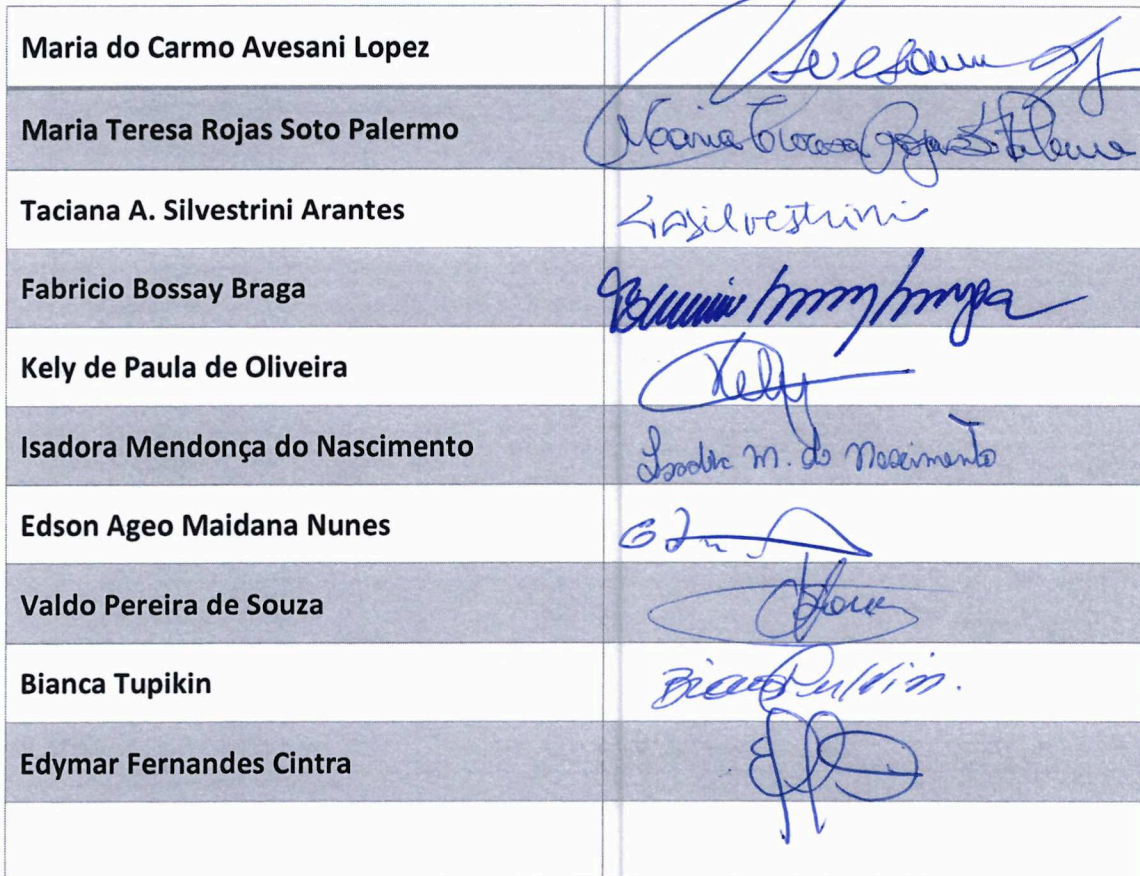 Maria do Carmo Avesani Lopez
Maria Teresa Rojas Soto Palermo Maria Teresa Rojas S. Palermo
Taciana A. Silvestrini Arantes Tasilvestrini
Fabricio Bossay Braga
Kely de Paula de Oliveira Kelly
Isadora Mendonça do Nascimento Isadora M. do Nascimento
Edson Ageo Maidana Nunes
Valdo Pereira de Souza
Bianca Tupikin Bianca
Edymar Fernandes Cintra